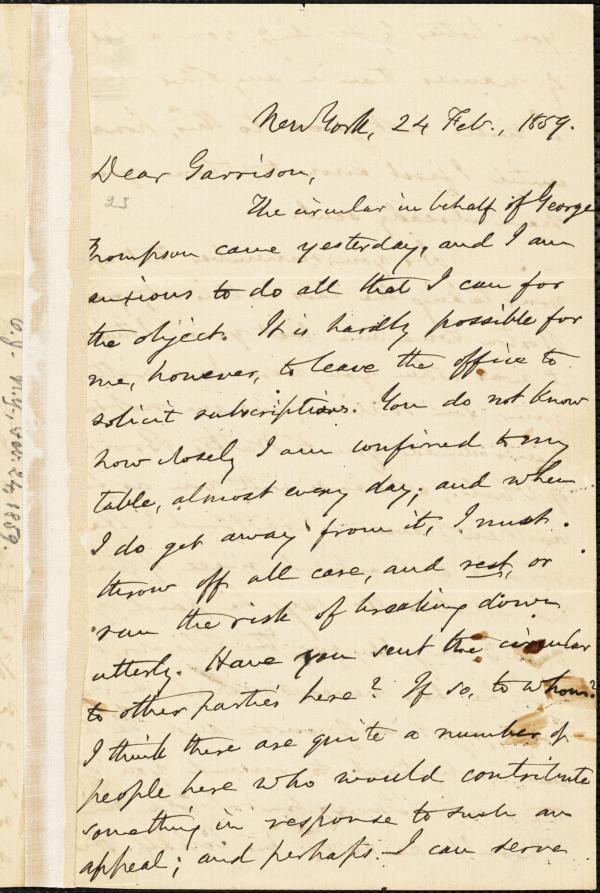 New York, 24 Feb., 1859.
Dear Garrison,
23
The circular in behalf of George
Thompson came yesterday, and I am
anxious to do all that I can for
the object. It is hardly possible for
me, however, to leave the office to
solicit subscriptions. You do not know
how closely I am confined to my
table, almost every day; and when
I do get away from it, I must
throw off all care, and rest, or
run the risk of breaking down
utterly. Have you sent the circular
to other parties here? If so, to whom?
I think there are quite a number of
people here who would contribute
something in response to such an
appeal; and perhaps I can serve
24 1859.